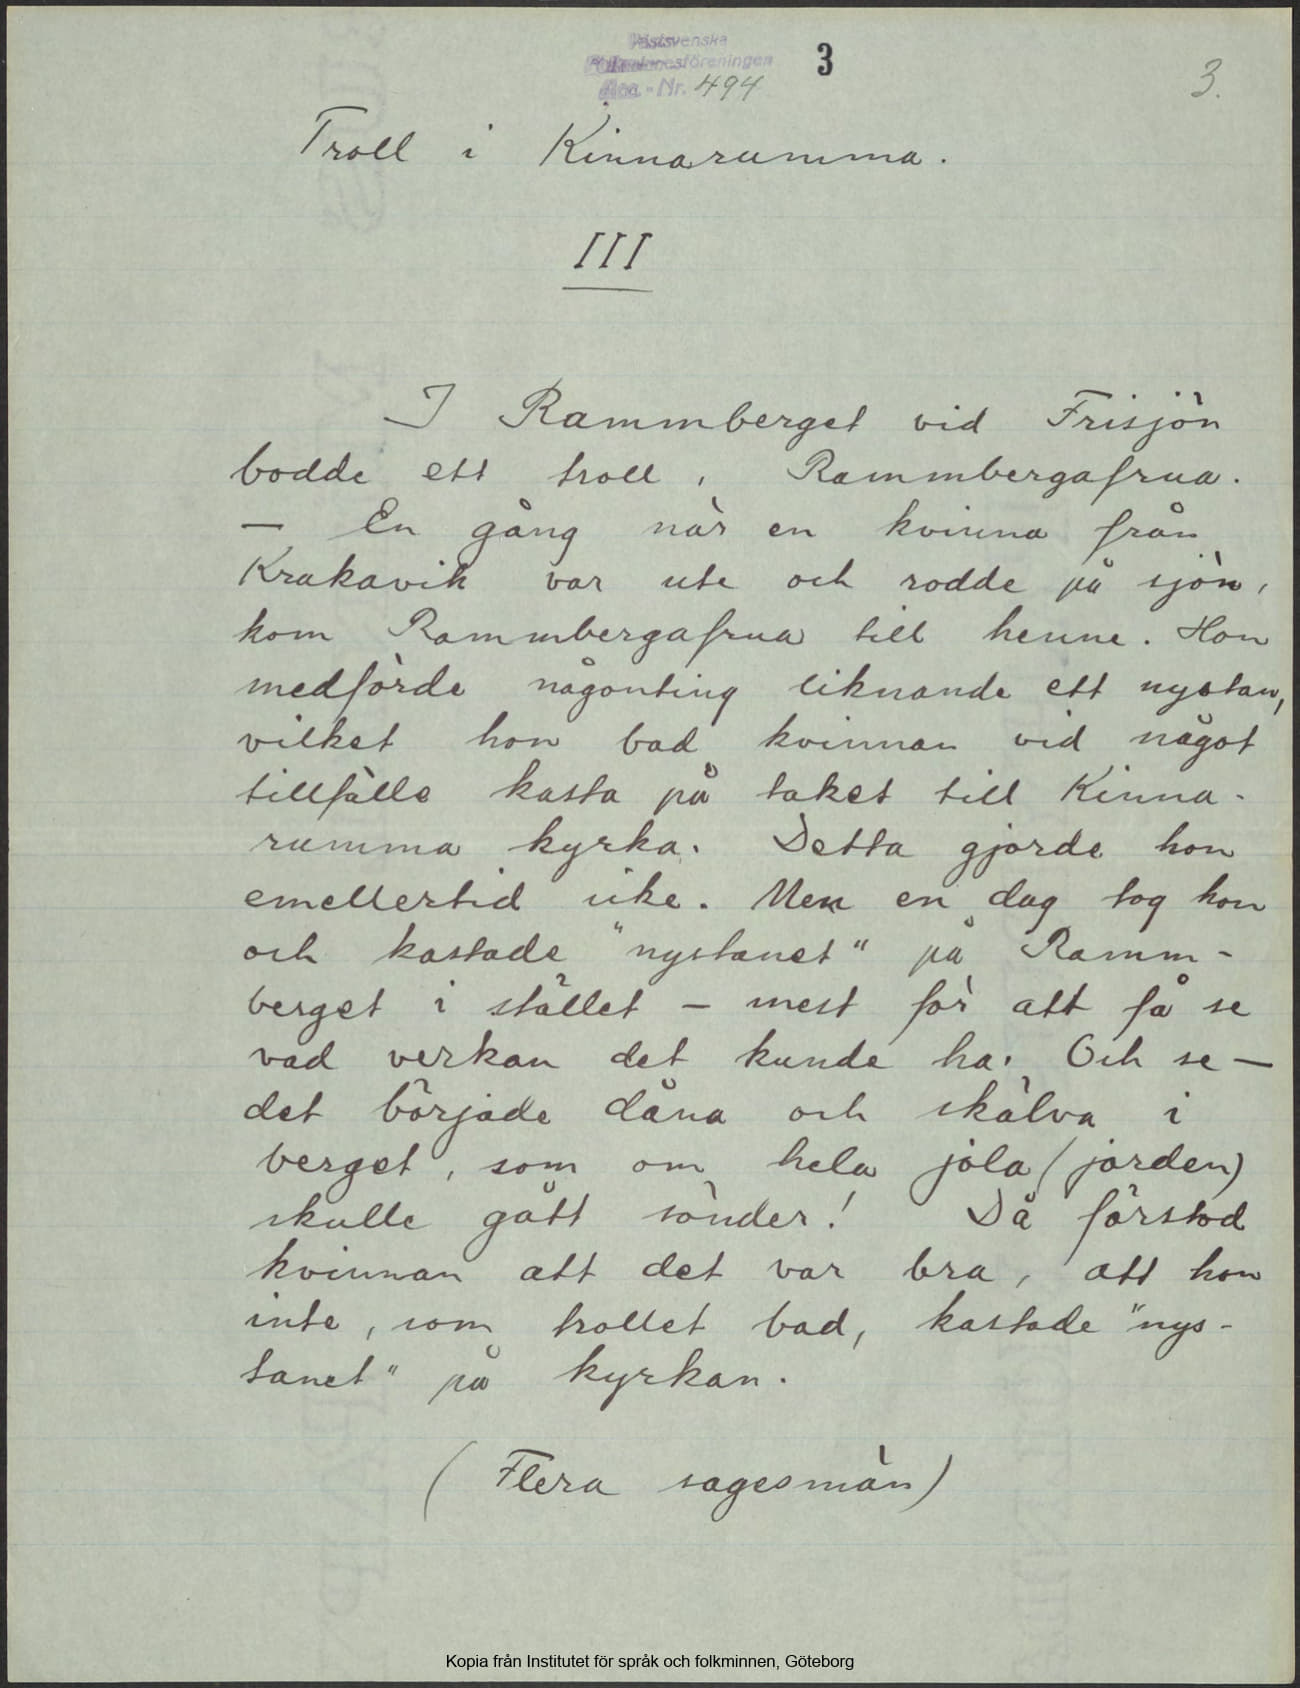 Västsvenska
Folkminnesföreningen
Acc.-Nr. 494
3
3.
Troll i Kinnarumma.
III
I Rammberget vid Frisjön
bodde ett troll, Rammbergafrua.
— En gång när en kvinna från
Krakavik var ute och rodde på sjön,
kom Rammbergafrua till henne. Hon
medförde någonting liknande ett nystan,
vilket hon bad kvinnan vid något
tillfälle kasta på taket till Kinna-
rumma kyrka. Detta gjorde hon
emellertid icke. Men en dag tog hon
och kastade "nystanet" på Ramm-
berget i stället – mest för att få se
vad verkan det kunde ha. Och se —
det började dåna och skälva i
berget, som om hela jola (jorden)
skulle gått sönder! Då förstod
kvinnan att det var bra, att hon
inte, som trollet bad, kastade "nys-
tanet" på kyrkan.
(Flera sagesmän)
Kopia från Institutet för språk och folkminnen, Göteborg